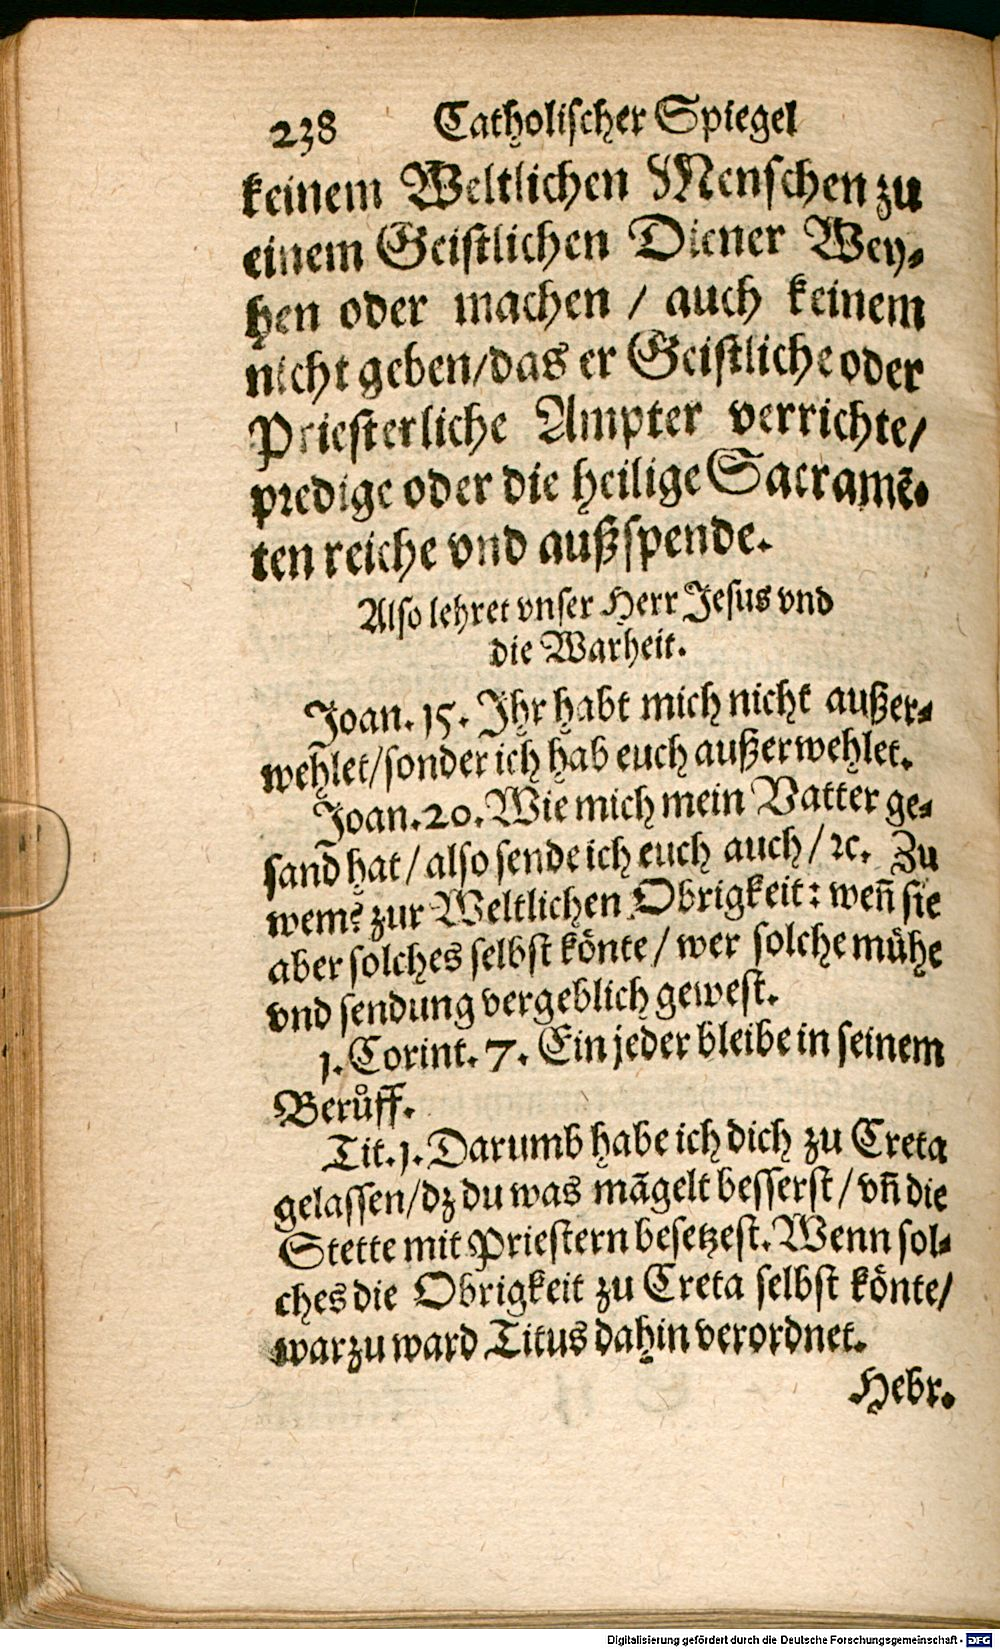 238 Catholischer Spiegel
keinem Weltlichen Menschen zu
einem Geistlichen Diener Wey-
hen oder machen / auch keinem
nicht geben/das er Geistliche oder
Priesterliche Ampter verrichte/
predige oder die heilige Sacramẽ-
ten reiche vnd außspende.
Also lehret vnser Herr Jesus vnd
die Warheit.
Joan. 15. Ihr habt mich nicht außer-
wehlet/sonder ich hab euch außerwehlet.
Joan. 20. Wie mich mein Vatter ge-
sand hat / also sende ich euch auch / ꝛc. Zu
wem? zur Weltlichen Obrigkeit: weñ sie
aber solches selbst könte / wer solche mühe
vnd sendung vergeblich gewest.
1. Corint. 7. Ein jeder bleibe in seinem
Berůff.
Tit. 1. Darumb habe ich dich zu Creta
gelassen/dz du was mãgelt besserst / vñ die
Stette mit Priestern besetzest. Wenn sol-
ches die Obrigkeit zu Creta selbst könte/
warzu ward Titus dahin verordnet.
Hebr.
Digitalisierung gefördert durch die Deutsche Forschungsgemeinschaft - DFG